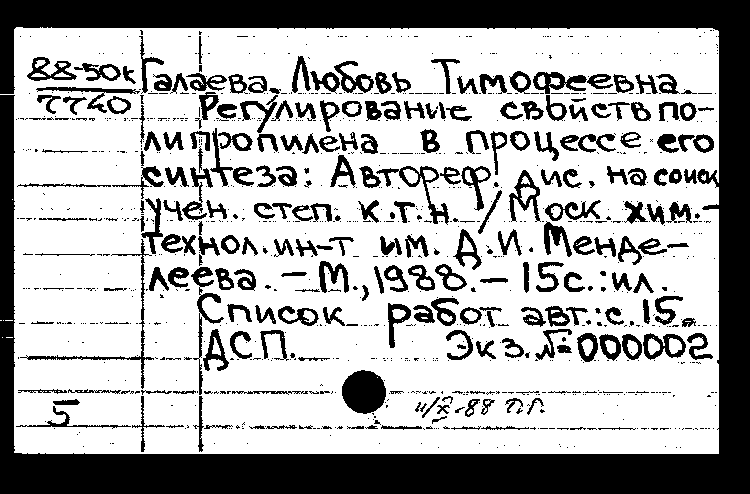 88-50к
7740
Галаева, Любовь Тимофеевна.
Регулирование свойств по-
липропилена в процессе его
синтеза: Автореф. дис. на соиск
учен. степ. к.т.н. / Моск. хим.-
технол. ин-т им. Д.И. Менде-
леева. – М., 1988. – 15с.: ил.
Список работ авт.: с. 15.
ДСП. Экз. № 000002
5
-88